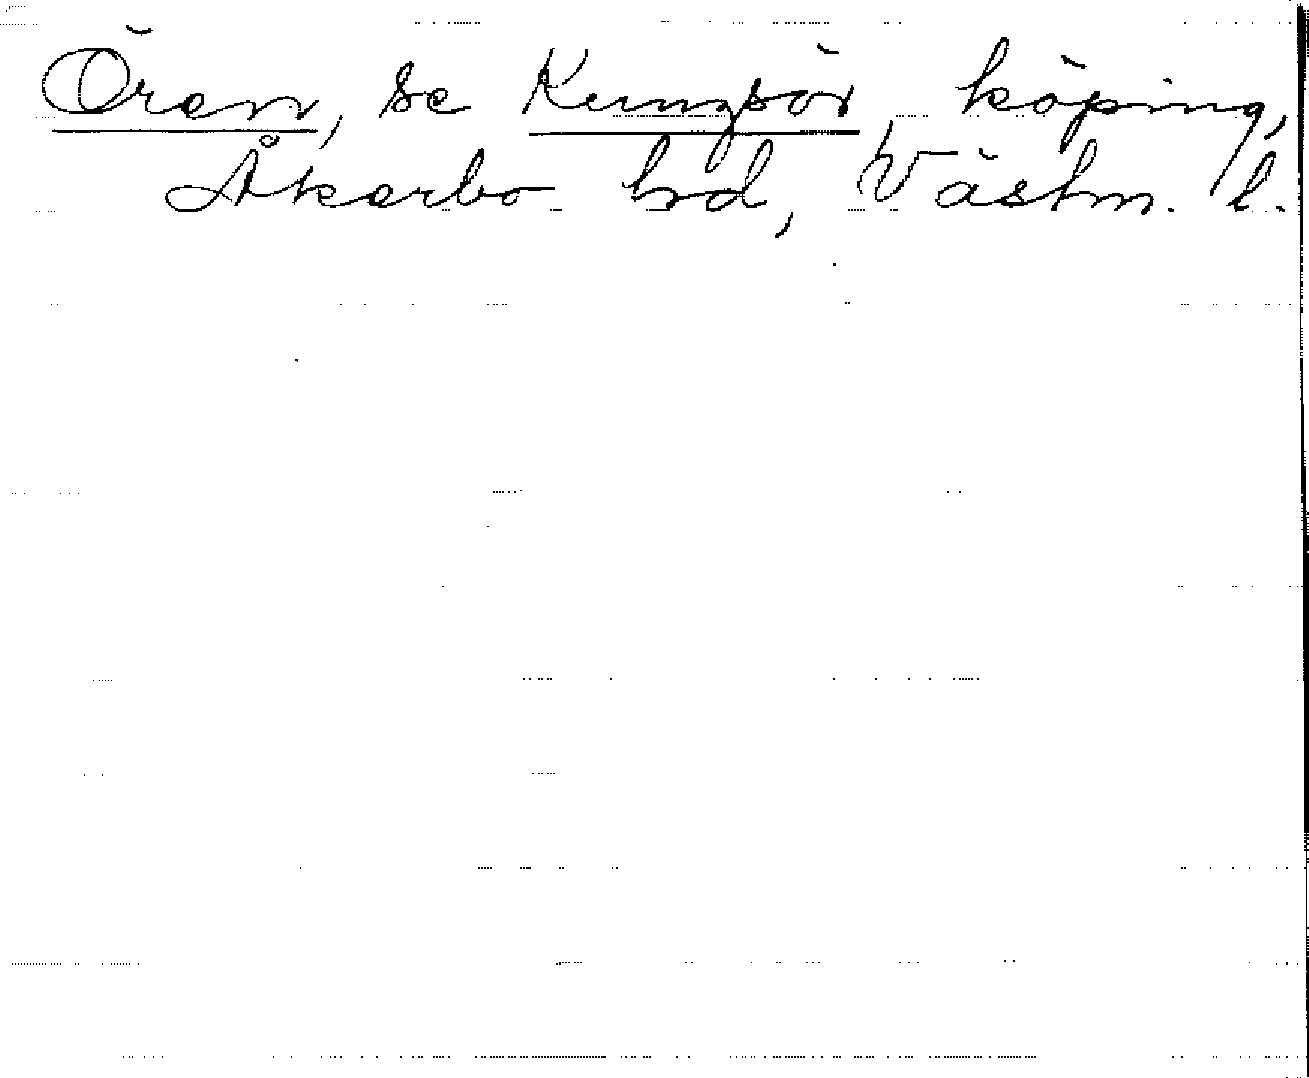 Ören, se Kungsör, köping,
Åkerbo hd, Västm. l.